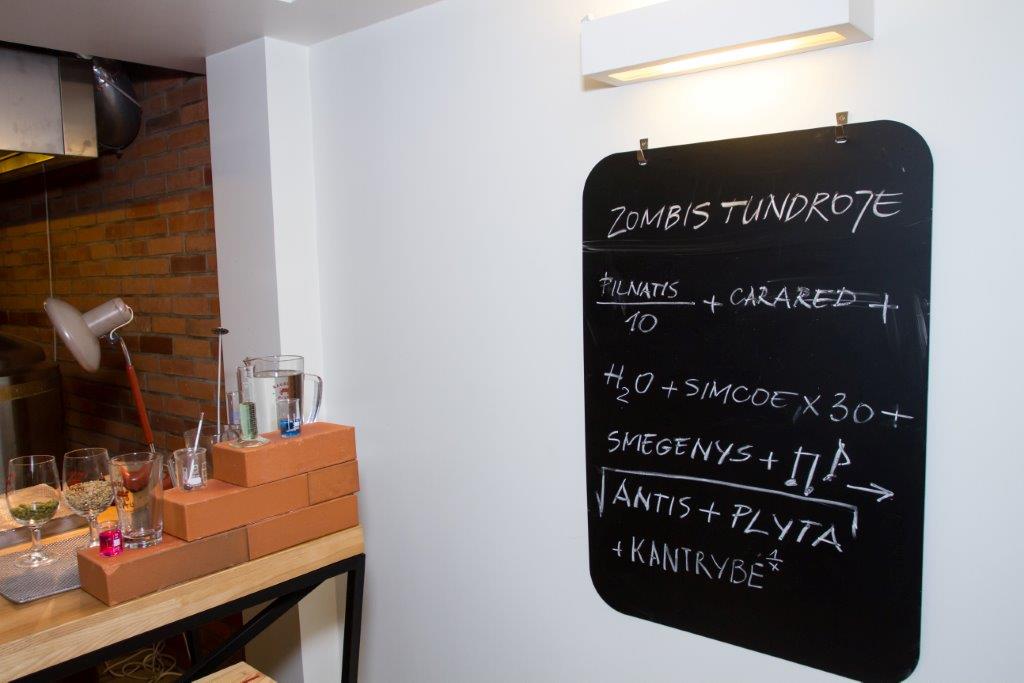 ZOMBIS TUNDROJE
PILNATIS
10
+ CARARED +
H₂O + SIMCOE X 30 +
SMEGENYS + ♫ ♪ →
√ANTIS + PLYTA
+ KANTRYBĖ
1/x